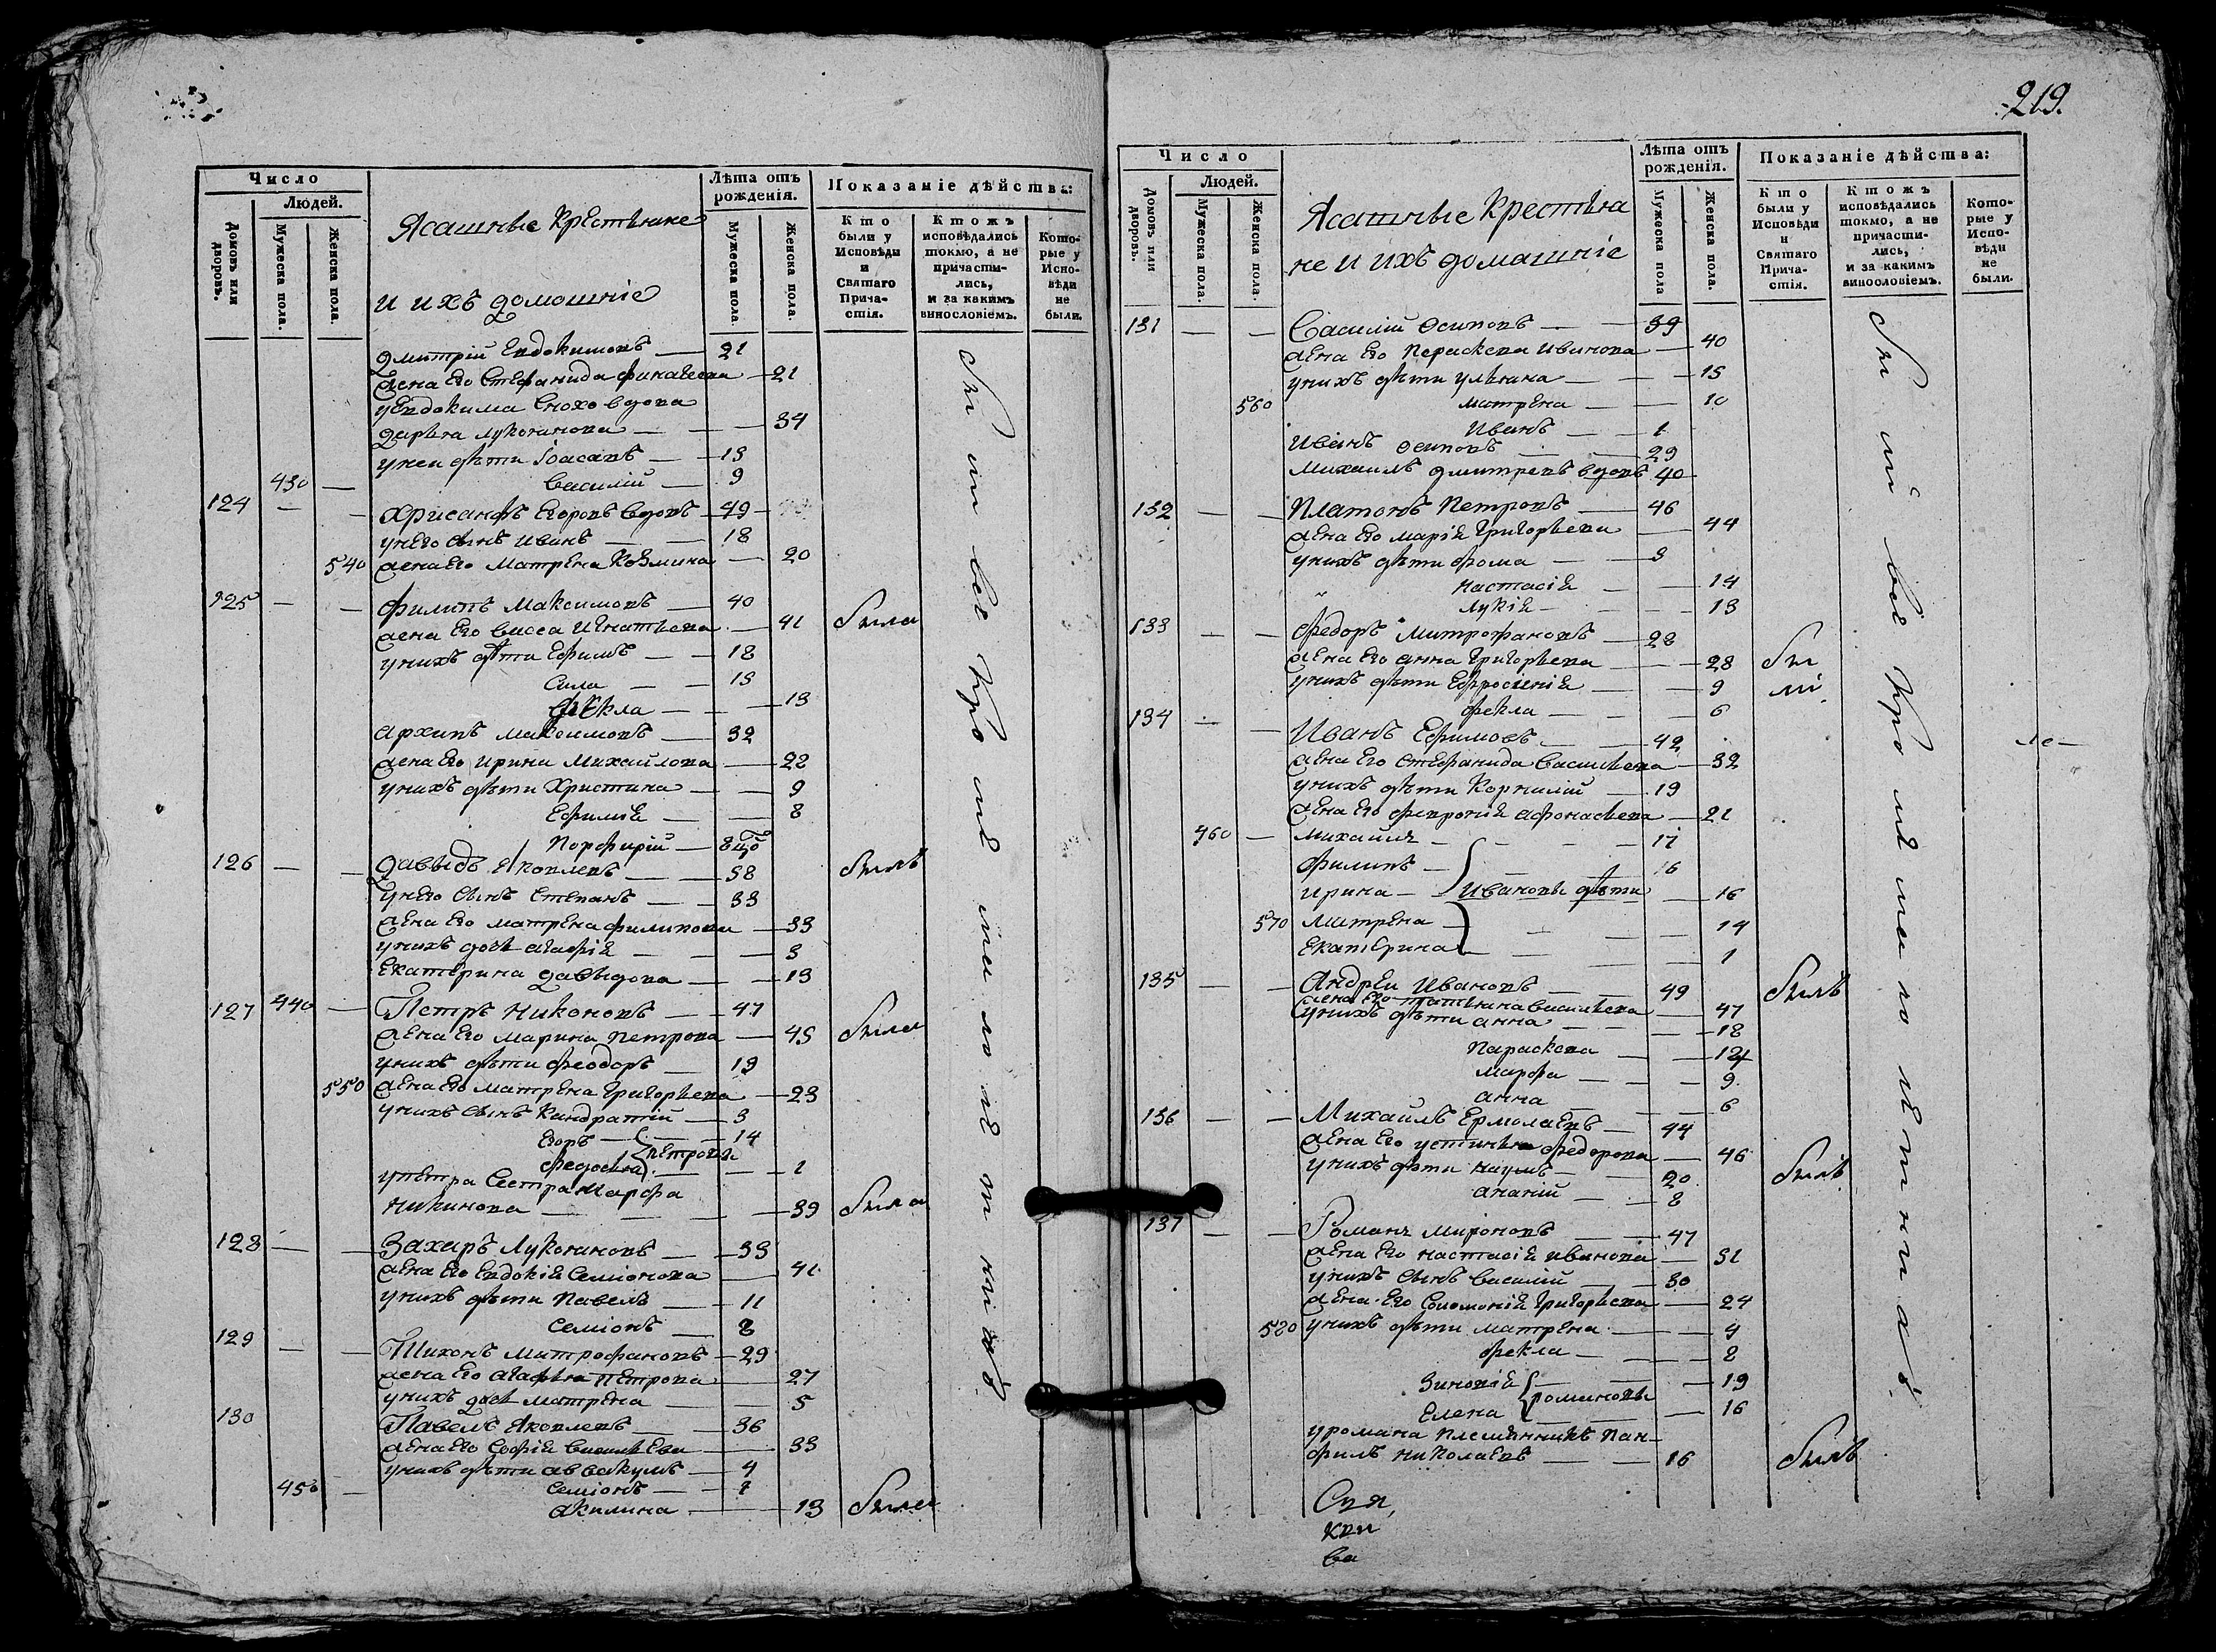 Число
Людей.
Домовъ или дворовъ.
Мужеска пола.
Женска пола.
Ясашные крестьяне
и ихъ домошніе
Лѣта отъ рожденія.
Мужеска пола.
Женска пола.
Показаніе дѣйства:
Кто были у Исповѣди и Святаго Причастія.
Ктожъ исповѣдались токмо, а не причастились, и за какимъ винословіемъ.
Которые у Исповѣди не были.
Дмитрій Евдокимовъ 21
жена его Стефанида 21
у Евдокима сноха вдова
Дарья Лукоянова 34
у неи дѣти Іоасапъ 13
430 Василій 9
124 Хрисанфъ Егоровъ вдовъ 49
у него сынъ Иванъ 18
540 жена его Матрена Козмина 20
125 Филипъ Максимовъ 40
жена его Васса Игнатьева 41 была
у нихъ дѣти Ефимъ 18
Сила 15
Фекла 13
Архипъ Максимовъ 32
жена его Ирина Михайлова 22
у нихъ дѣти Христина 9
Ефимія 8
Порфирій
126 Давыдъ Яковлевъ 58 былъ
у него сынъ Степанъ 33
жена его Матрена Филипова 33
у нихъ дочь Агафія 3
Екатерина Давыдова 13
127 440 Петръ Никоновъ 47
жена его Марина Петрова 45 были
у нихъ дѣти Феодоръ 19
550 жена его Матрена Григорьева 23
у нихъ сынъ Кандратій 3
Егоръ 14
Федосья Петровы 1
у Петра сестра Марфа
Никинова 39 была
128 Захаръ Лукояновъ 35
жена его Евдокія Семіонова 41
у нихъ дѣти Павелъ 11
Семіонъ 8
129 Тихонъ Митрофановъ 29
жена его Агафья Петрова 27
у нихъ дочь Матрена 5
130 Павелъ Яковлевъ 36
жена его Софія 33
у нихъ дѣти Аввакумъ 4
450 Семіонъ
Акилина 13 была
были все кроме малолетнихъ
219.
Число
Людей.
Домовъ или дворовъ.
Мужеска пола.
Женска пола.
Ясашные крестья
не и ихъ домашніе
Лѣта отъ рожденія.
Мужеска пола
Женска пола.
Показаніе дѣйства:
Кто были у Исповѣди и Святаго Причастія.
Ктожъ исповѣдались токмо, а не причастились, и за какимъ винословіемъ.
Которые у Исповѣди не были.
131 Василій Осиповъ 39
жена его Пераскева Иванова 40
у нихъ дѣти Ульяна 15
560 Матрена 10
Иванъ 1
Иванъ Осиповъ 29
Михаилъ Дмитревъ вдовъ 40
132 Платонъ Петровъ 46
жена его Марія Григорьева 44
у нихъ дѣти Фома 3
Настасія 14
Лукія 13
133 Федоръ Митрофановъ 28
жена его Анна Григорьева 28 бы
у нихъ дѣти Ефросинія 9 ли
Фекла 6
134 Иванъ Ефимовъ 42
жена его Стефанида Васильева 32
у нихъ дѣти Корнилій 19
жена его Феврония Афонасьева 21
460 Михаилъ 17
Филипъ 16
Ирина Ивановы дѣти 16
570 Матрена 14
Екатерина 1
135 Андреи Ивановъ 49 былъ
жена его Татьяна Васильева 47
у нихъ дѣти Анна 18
Параскева 14
Марфа 9
Анна 6
136 Михаилъ Ермолаевъ 44
жена его Устинья Федорова 46
у нихъ дѣти Наумъ 20 былъ
Ананій 8
137 Романъ Мироновъ 47
жена его Настасія Иванова 51
у нихъ сынъ Василій 30
жена его Соломонія Григорьева 24
580 у нихъ дѣти Матрена 4
Фекла 2
Зиновія 19
Елена Романовы 16
у Романа племянникъ Пан-
филъ Николаевъ 16 былъ
были все кроме малолетнихъ